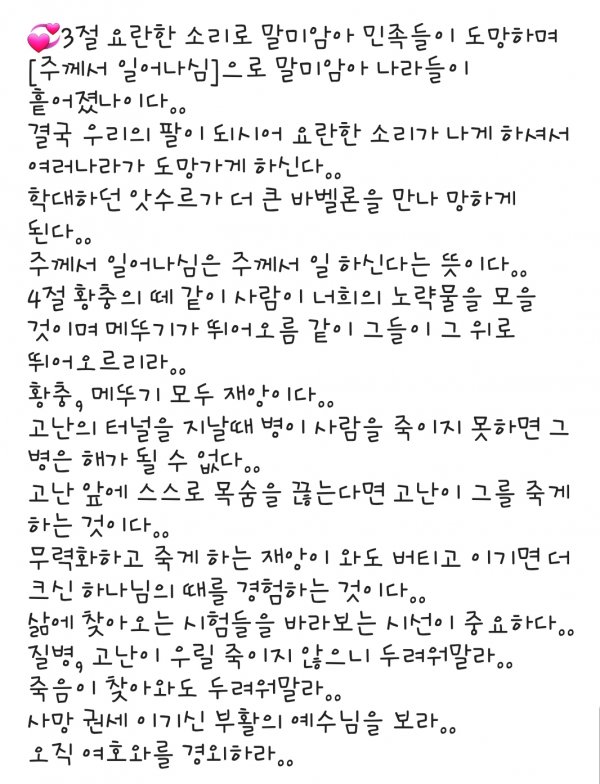 💞3절 요란한 소리로 말미암아 민족들이 도망하며
[주께서 일어나심]으로 말미암아 나라들이
흩어졌나이다..
결국 우리의 팔이 되시어 요란한 소리가 나게 하셔서
여러나라가 도망가게 하신다..
학대하던 앗수르가 더 큰 바벨론을 만나 망하게
된다..
주께서 일어나심은 주께서 일 하신다는 뜻이다..
4절 황충의 떼 같이 사람이 너희의 노략물을 모을
것이며 메뚜기가 뛰어오름 같이 그들이 그 위로
뛰어오르리라..
황충, 메뚜기 모두 재앙이다..
고난의 터널을 지날때 병이 사람을 죽이지 못하면 그
병은 해가 될 수 없다..
고난 앞에 스스로 목숨을 끊는다면 고난이 그를 죽게
하는 것이다..
무력화하고 죽게 하는 재앙이 와도 버티고 이기면 더
크신 하나님의 때를 경험하는 것이다..
삶에 찾아오는 시험들을 바라보는 시선이 중요하다..
질병, 고난이 우릴 죽이지 않으니 두려워말라..
죽음이 찾아와도 두려워말라..
사망 권세 이기신 부활의 예수님을 보라..
오직 여호와를 경외하라..